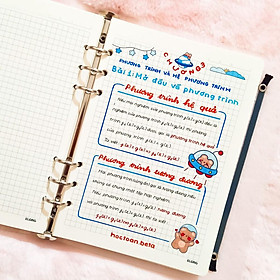 CHƯƠNG 3
PHƯƠNG TRÌNH VÀ HỆ PHƯƠNG TRÌNH
Bài 1: Mở đầu về phương trình
Phương trình hệ quả
Nếu mọi nghiệm của phương trình f₁(x) = g₁(x) đều là
nghiệm của phương trình f₂(x) = g₂(x) thì phương
trình f₂(x) = g₂(x) được gọi là phương trình hệ quả
của phương trình f₁(x) = g₁(x).
Ta viết: f₁(x) = g₁(x) ⇒ f₂(x) = g₂(x)
Phương trình tương đương
Hai phương trình
chúng có chung một tập hợp nghiệm.
Nếu phương trình f₁(x) = g₁(x) tương đương
với phương trình f₂(x) = g₂(x) thì ta viết:
f₁(x) = g₁(x) ⇔ f₂(x) = g₂(x)
hoctoan.beta
KLONG
KLONG